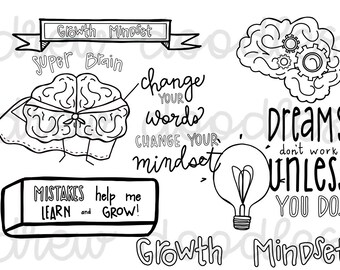 Growth Mindset
Super Brain
change
YOUR
words
CHANGE YOUR
mindset
MISTAKES help me
LEARN and GROW!
DREAMS
don't work
UNLESS
YOU DO.
Growth Mindset